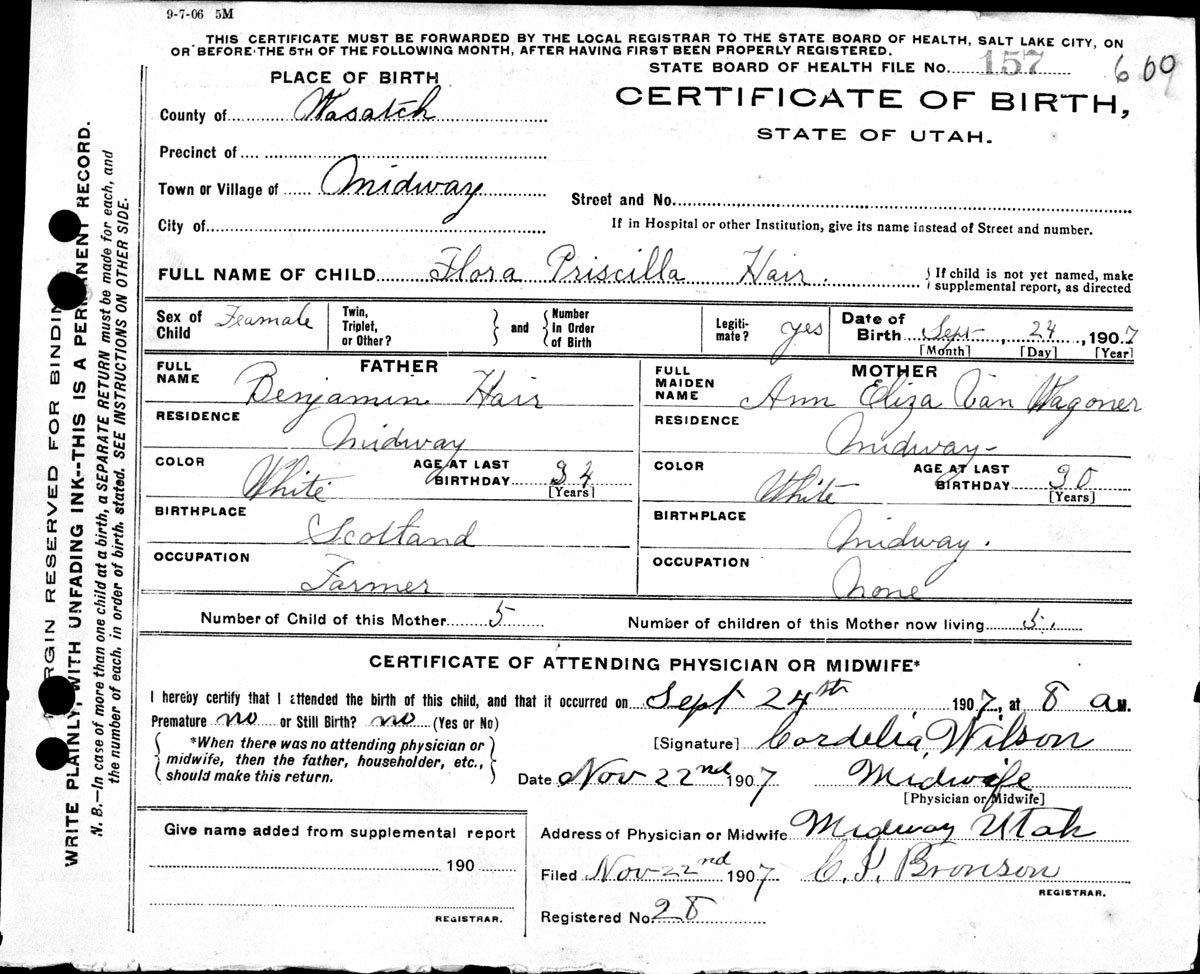 9-7-06 5M
THIS CERTIFICATE MUST BE FORWARDED BY THE LOCAL REGISTRAR TO THE STATE BOARD OF HEALTH, SALT LAKE CITY, ON
OR BEFORE THE 5TH OF THE FOLLOWING MONTH, AFTER HAVING FIRST BEEN PROPERLY REGISTERED.
STATE BOARD OF HEALTH FILE No. 157 609
PLACE OF BIRTH
CERTIFICATE OF BIRTH,
STATE OF UTAH.
County of Wasatch
Precinct of
Town or Village of Midway
Street and No.
City of
If in Hospital or other Institution, give its name instead of Street and number.
FULL NAME OF CHILD Flora Priscilla Hair.
If child is not yet named, make
supplemental report, as directed
Sex of Child Feamale
Twin, Triplet, or Other?
and
Number in Order of Birth
Legiti-mate? yes
Date of Birth Sept 24, 1907
[Month] [Day] [Year]
FATHER
FULL NAME Benjamin Hair
RESIDENCE Midway
COLOR White
AGE AT LAST BIRTHDAY 34
[Years]
BIRTHPLACE Scotland
OCCUPATION Farmer
MOTHER
FULL MAIDEN NAME Ann Eliza Van Wagoner
RESIDENCE Midway
COLOR White
AGE AT LAST BIRTHDAY 30
[Years]
BIRTHPLACE Midway.
OCCUPATION None
Number of Child of this Mother 5
Number of children of this Mother now living 5.
CERTIFICATE OF ATTENDING PHYSICIAN OR MIDWIFE*
I hereby certify that I attended the birth of this child, and that it occurred on Sept 24th 1907, at 8 a M.
Premature no or Still Birth? no (Yes or No)
*When there was no attending physician or
midwife, then the father, householder, etc.,
should make this return.
[Signature] Cordelia Wilson
Date Nov 22nd 1907 Midwife
[Physician or Midwife]
Give name added from supplemental report
190
REGISTRAR.
Address of Physician or Midwife Midway Utah
Filed Nov 22nd 1907 Bronson
REGISTRAR.
Registered No. 28
MARGIN RESERVED FOR BINDING
WRITE PLAINLY, WITH UNFADING INK--THIS IS A PERMANENT RECORD.
N. B.—In case of more than one child at a birth, a SEPARATE RETURN must be made for each, and
the number of each, in order of birth, stated. SEE INSTRUCTIONS ON OTHER SIDE.